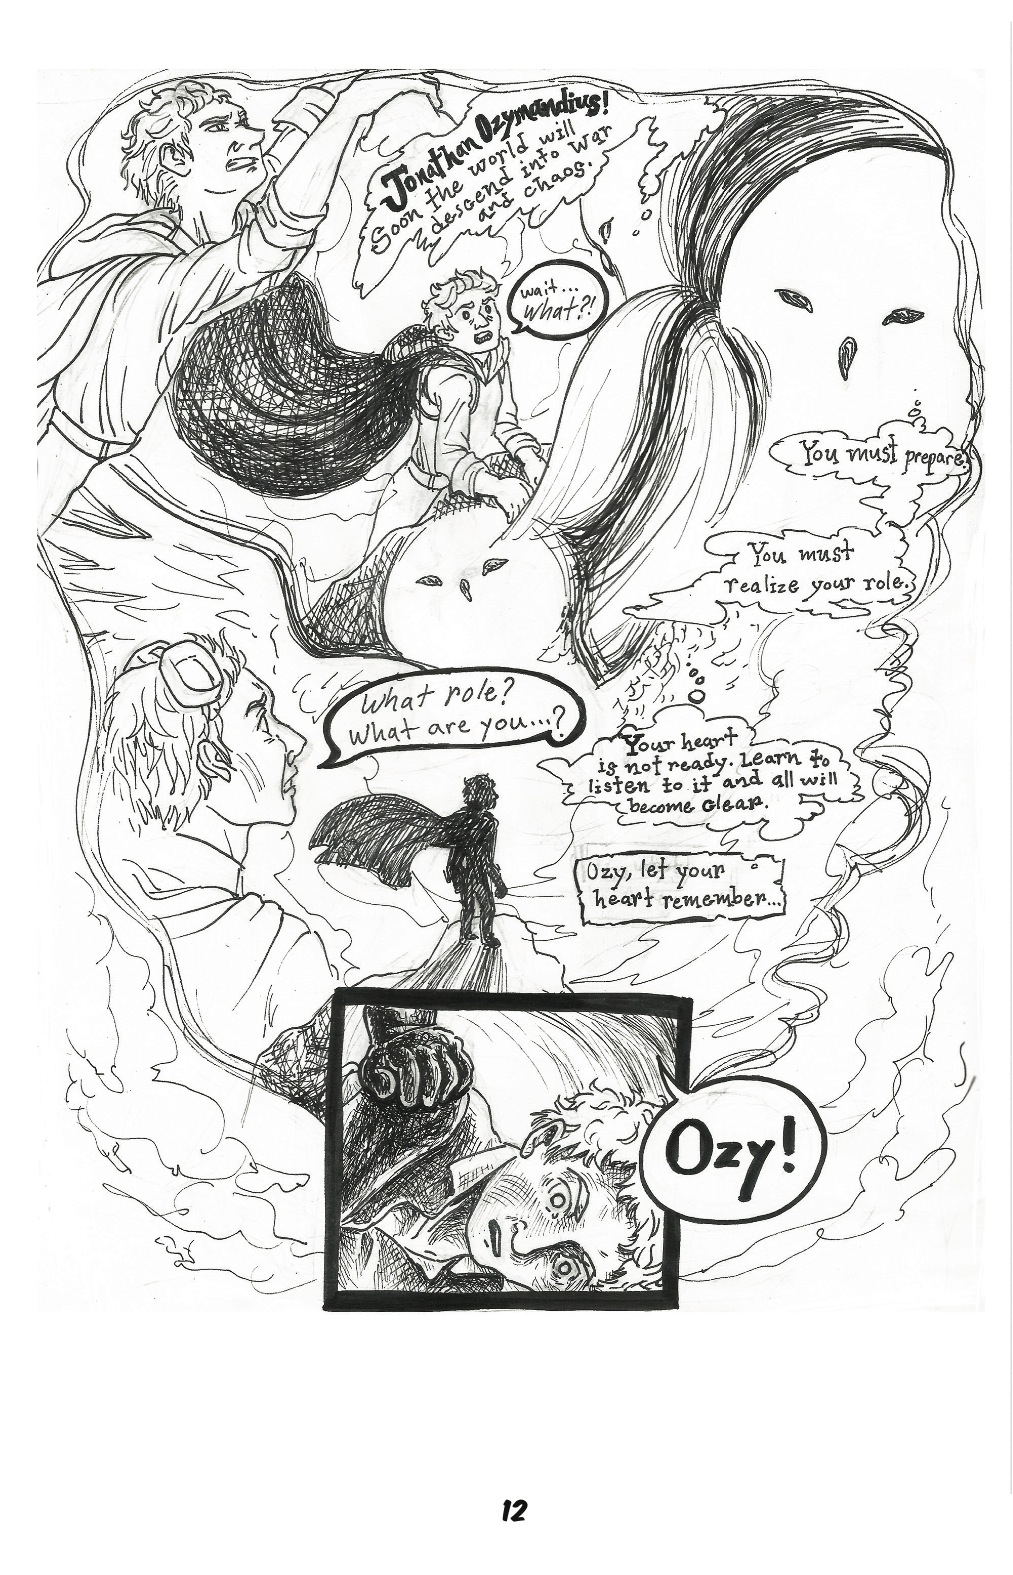 Jonathan Ozymandius!
Soon the world will
descend into war
and chaos.
wait...
what?!
You must prepare.
You must
realize your role.
What role?
What are you...?
Your heart
is not ready. Learn to
listen to it and all will
become clear.
Ozy, let your
heart remember...
Ozy!
12